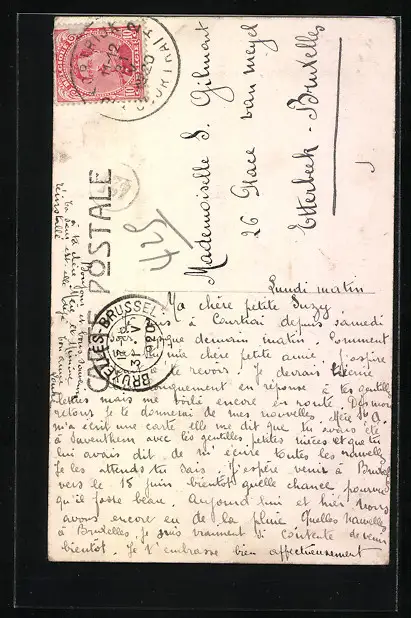 CARTE POSTALE
BELGIQUE
COURTRAI
KORTRIJK
12
1920
BRUXELLES BRUSSEL
V
1920
425
Mademoiselle S. Gilmont
26 Place van Meyel
Etterbeek - Bruxelles
Lundi matin
Ma chère petite Suzy,
à Courtrai depuis samedi
que demain matin. Comment
mie chère petite amie, j'espère
revoir. Je devrais t'écrire
longuement en réponse à tes gentilles
lettres mais me voilà encore en route. Dès mon
retour je te donnerai de mes nouvelles. Mère
m'a écrit une carte elle me dit que tu avais été
à Saventhem avec les gentilles petites nièces et que tu
lui avais dit de m'écrire toutes les nouvelles
Je les attends tu sais. J'espère venir à Bruxelles
vers le 15 juin bientôt quelle chance pourvu
qu'il fasse beau. Aujourd'hui et hier nous
avons encore eu de la pluie. Quelles nouvelles
à Bruxelles, je suis vraiment si contente de venir
bientôt. Je t'embrasse bien affectueusement
à ta chère
Ta sœur est elle
réinstallé